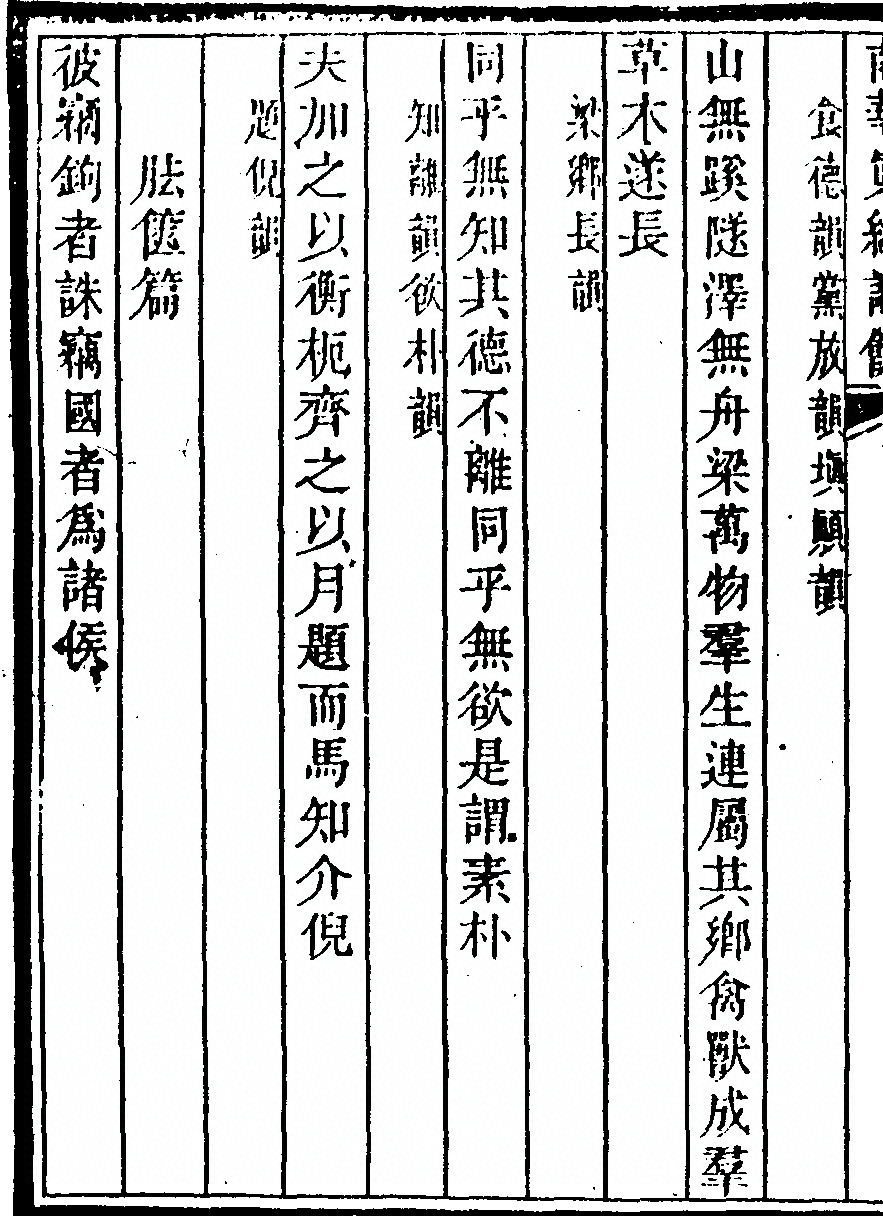 南華真經
食德韻黨放韻塡顛韻
山無蹊隧澤無舟梁萬物羣生連屬其鄉禽獸成羣
草木遂長
梁鄉長韻
同乎無知其德不離同乎無欲是謂素朴
知離韻欲朴韻
夫加之以衡枙齊之以月題而馬知介倪
題倪韻
胠篋篇
彼竊鉤者誅竊國者爲諸侯